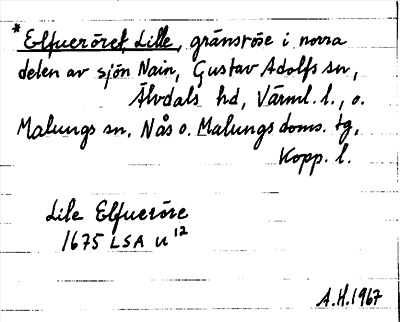 *Elfueröret Lille, gränsröse i norra
delen av sjön Nain, Gustav Adolfs sn,
Älvdals hd, Värml. l., o.
Malungs sn, Nås o. Malungs doms. tg,
Kopp. l.
Lile Elfueröre
1675 LSA U 12
A.H. 1967